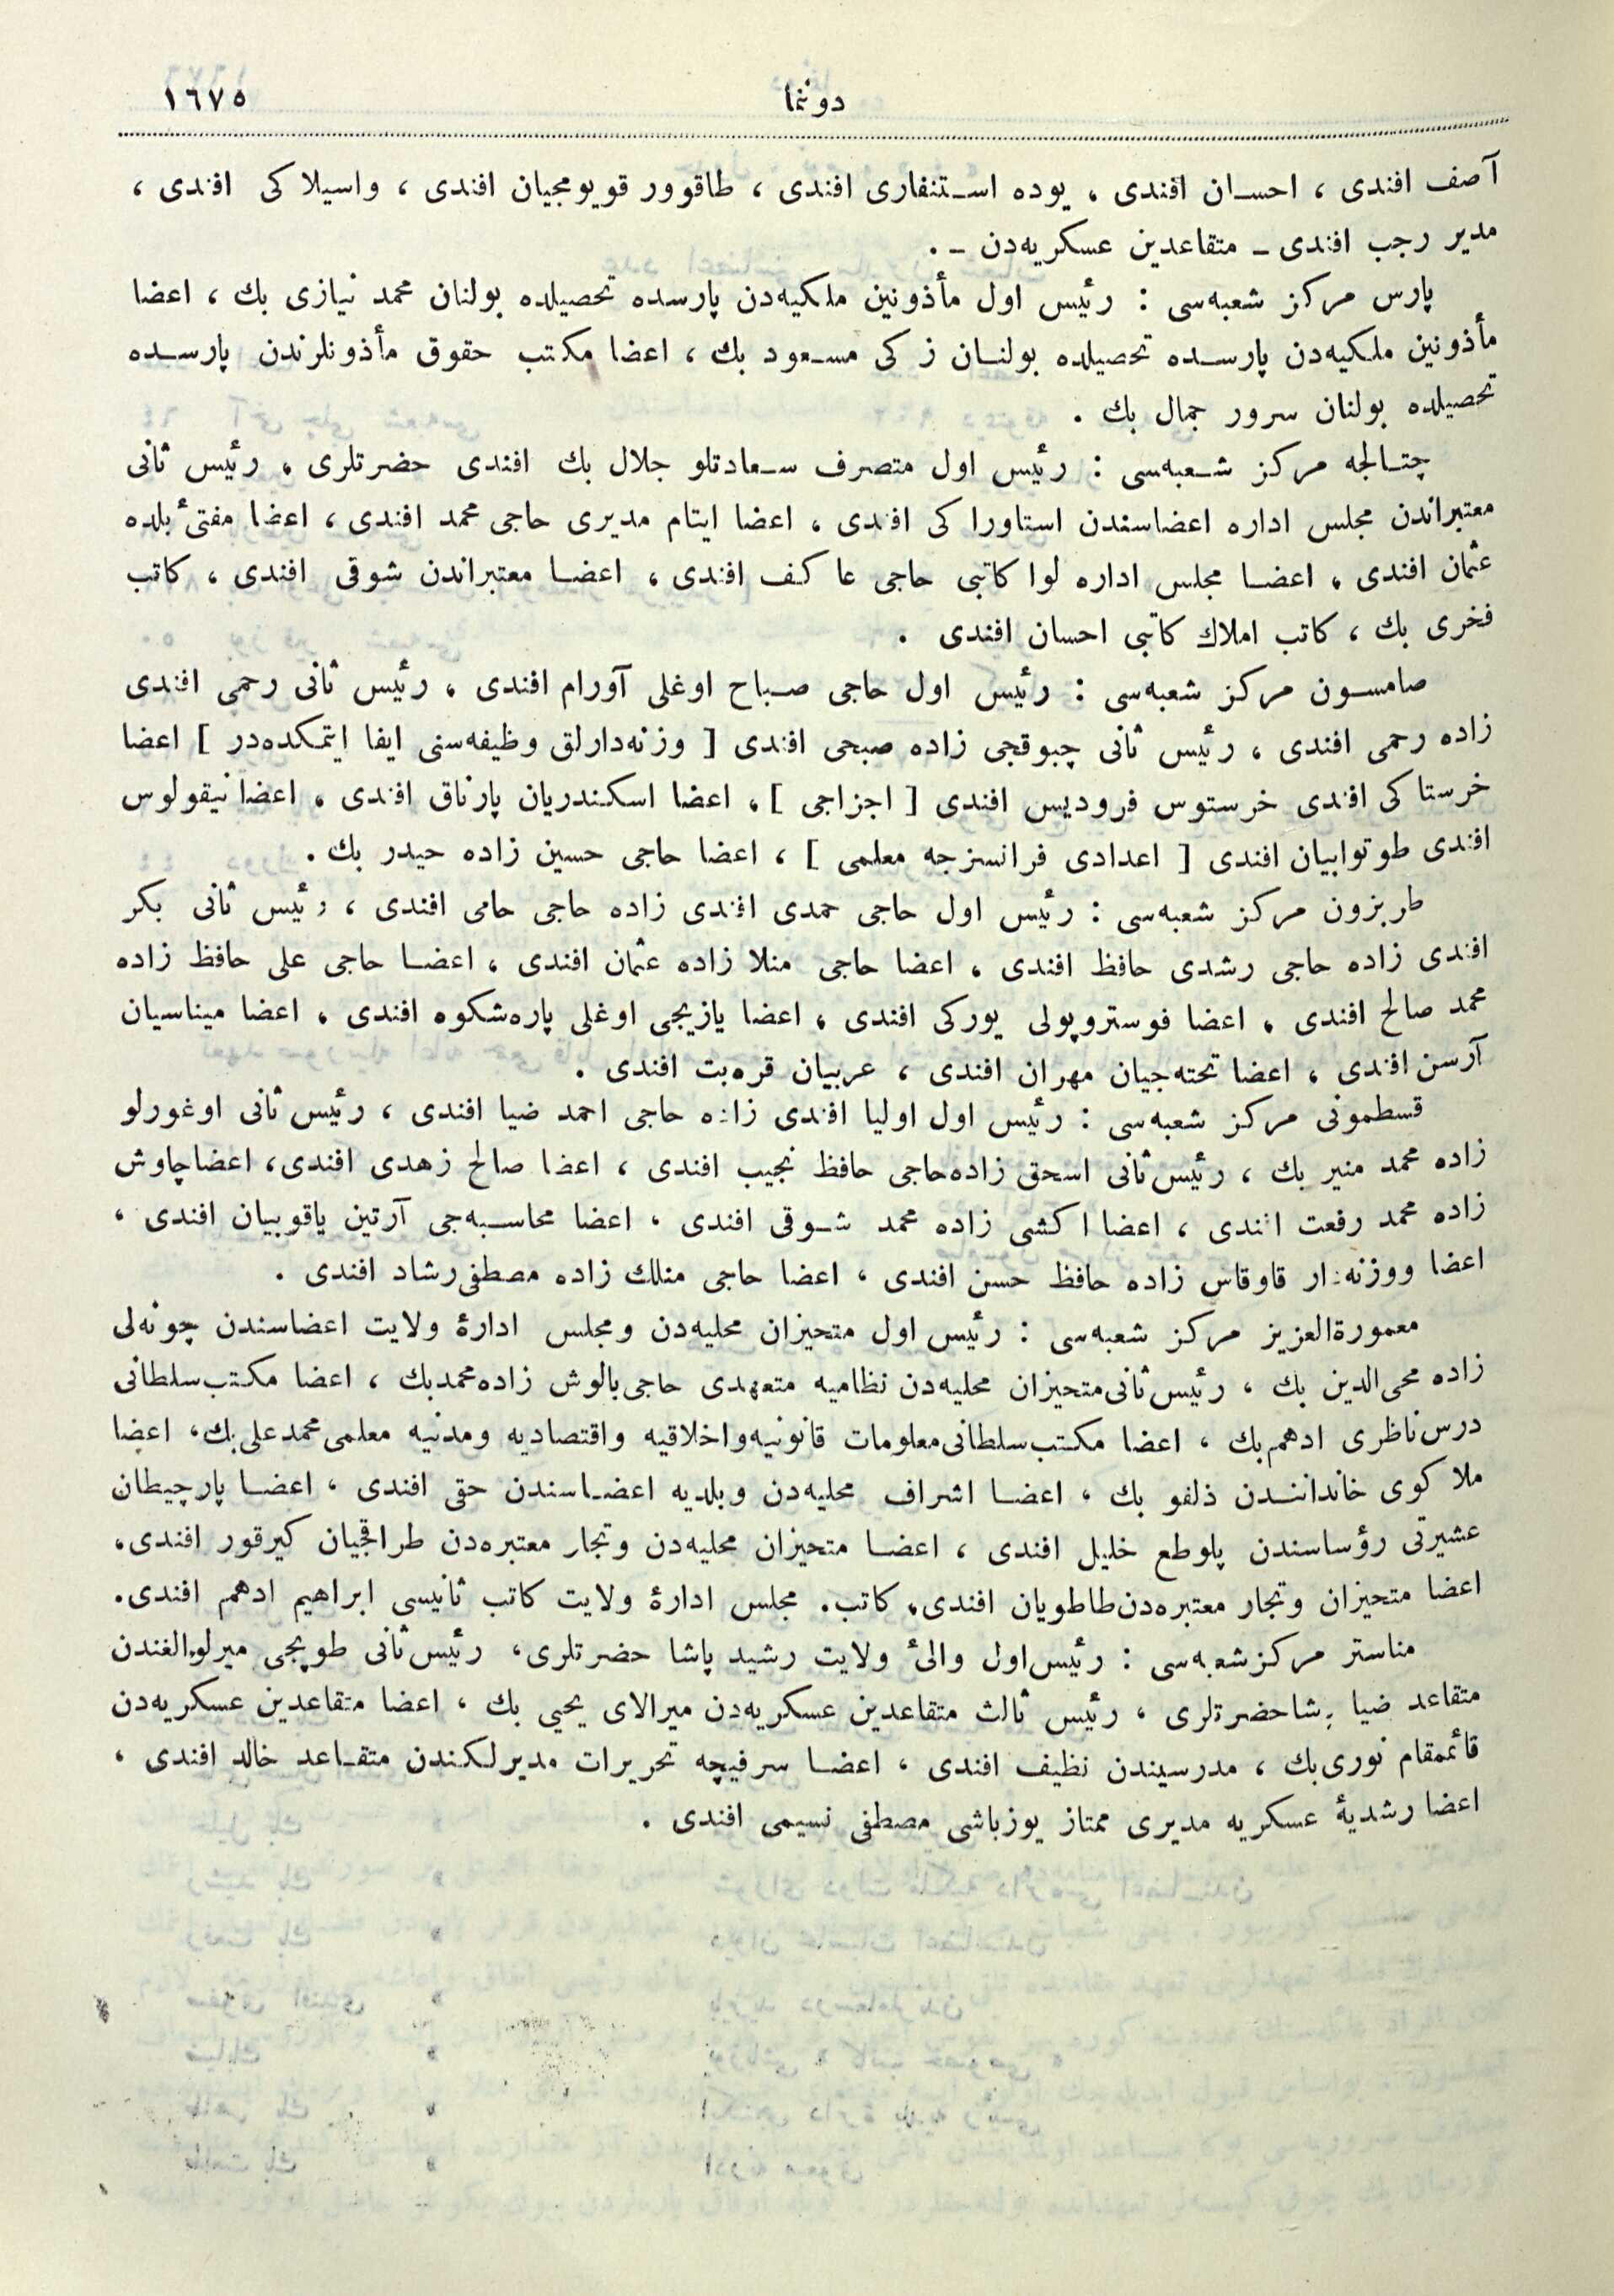 دوننما ١٦٧٥
آصف افندی ، احسان افندی ، یوده استنفاری افندی ، طاقوور قویومجیان افندی ، واسیلا کی افندی ،
مدیر رجب افندی ـ متقاعدین عسکریه‌دن ـ .
پارس مرکز شعبه‌سی : رئیس اول مأذونین ملکیه‌دن پارسده تحصیلده بولنان محمد نیازی بك ، اعضا
مأذونین ملکیه‌دن پارسده تحصیلده بولنان زکی مسعود بك ، اعضا مکتب حقوق مأذونلرندن پارسده
تحصیلده بولنان سرور جمال بك .
چتالجه مرکز شعبه‌سی : رئیس اول متصرف سعادتلو جلال بك افندی حضرتلری ، رئیس ثانی
معتبراندن مجلس اداره اعضاسندن استاورا کی افندی ، اعضا ایتام مدیری حاجی محمد افندی ، اعضا مفتیٔ بلده
عثمان افندی ، اعضا مجلس اداره لوا کاتبی حاجی عاکف افندی ، اعضا معتبراندن شوقی افندی ، کاتب
فخری بك ، کاتب املاك کاتبی احسان افندی .
صامسون مرکز شعبه‌سی : رئیس اول حاجی صباح اوغلی آورام افندی ، رئیس ثانی رحمی افندی
زاده رحمی افندی ، رئیس ثانی چبوقجی زاده صبحی افندی [ وزنه‌دارلق وظیفه‌سنی ایفا ایتمکده‌در ] اعضا
خرستا کی افندی خرستوس فرودیس افندی [ اجزاجی ] ، اعضا اسکندریان پارناق افندی ، اعضا نیقولوس
افندی طوتوابیان افندی [ اعدادی فرانسزجه معلمی ] ، اعضا حاجی حسین زاده حیدر بك .
طربزون مرکز شعبه‌سی : رئیس اول حاجی حمدی افندی زاده حاجی حامی افندی ، رئیس ثانی بکر
افندی زاده حاجی رشدی حافظ افندی ، اعضا حاجی منلا زاده عثمان افندی ، اعضا حاجی علی حافظ زاده
محمد صالح افندی ، اعضا فوستروپولی یورکی افندی ، اعضا یازیجی اوغلی پاره‌شکوه افندی ، اعضا میناسیان
آرسن افندی ، اعضا تخته‌جیان مهران افندی ، عربیان قره‌بت افندی .
قسطمونی مرکز شعبه‌سی : رئیس اول اولیا افندی زاده حاجی احمد ضیا افندی ، رئیس ثانی اوغورلو
زاده محمد منیر بك ، رئیس ثانی اسحق زاده حاجی حافظ نجیب افندی ، اعضا صالح زهدی افندی ، اعضا چاوش
زاده محمد رفعت افندی ، اعضا اکشی زاده محمد شوقی افندی ، اعضا محاسبه‌جی آرتین یاقوبیان افندی ،
اعضا ووزنه‌دار قاوقاس زاده حافظ حسن افندی ، اعضا حاجی منلك زاده مصطفی رشاد افندی .
معمورةالعزیز مرکز شعبه‌سی : رئیس اول متحیزان محلیه‌دن ومجلس ادارۀ ولایت اعضاسندن چونه‌لی
زاده محی‌الدین بك ، رئیس ثانی متحیزان محلیه‌دن نظامیه متعهدی حاجی بالوش زاده محمد بك ، اعضا مکتب سلطانی
درس ناظری ادهم بك ، اعضا مکتب سلطانی معلومات قانونیه واخلاقیه واقتصادیه ومدنیه معلمی محمد علی بك ، اعضا
ملا کوی خانداننـدن ذلفو بك ، اعضا اشراف محلیه‌دن وبلدیه اعضاسندن حقی افندی ، اعضا پارچیطان
عشیرتی رؤساسندن پلوطع خلیل افندی ، اعضا متحیزان محلیه‌دن وتجار معتبره‌دن طراقجیان کیرقور افندی ،
اعضا متحیزان وتجار معتبره‌دن طاطویان افندی ، کاتب . مجلس ادارۀ ولایت کاتب ثانیسی ابراهیم ادهم افندی .
مناستر مرکز شعبه‌سی : رئیس اول والیٔ ولایت رشید پاشا حضرتلری ، رئیس ثانی طوپجی میرلوالغندن
متقاعد ضیا پاشا حضرتلری ، رئیس ثالث متقاعدین عسکریه‌دن میرالای یحیی بك ، اعضا متقاعدین عسکریه‌دن
قائممقام نوری بك ، مدرسیندن نظیف افندی ، اعضا سرفیچه تحریرات مدیرلکندن متقاعد خالد افندی ،
اعضا رشدیۀ عسکریه مدیری ممتاز یوزباشی مصطفی نسیمی افندی .